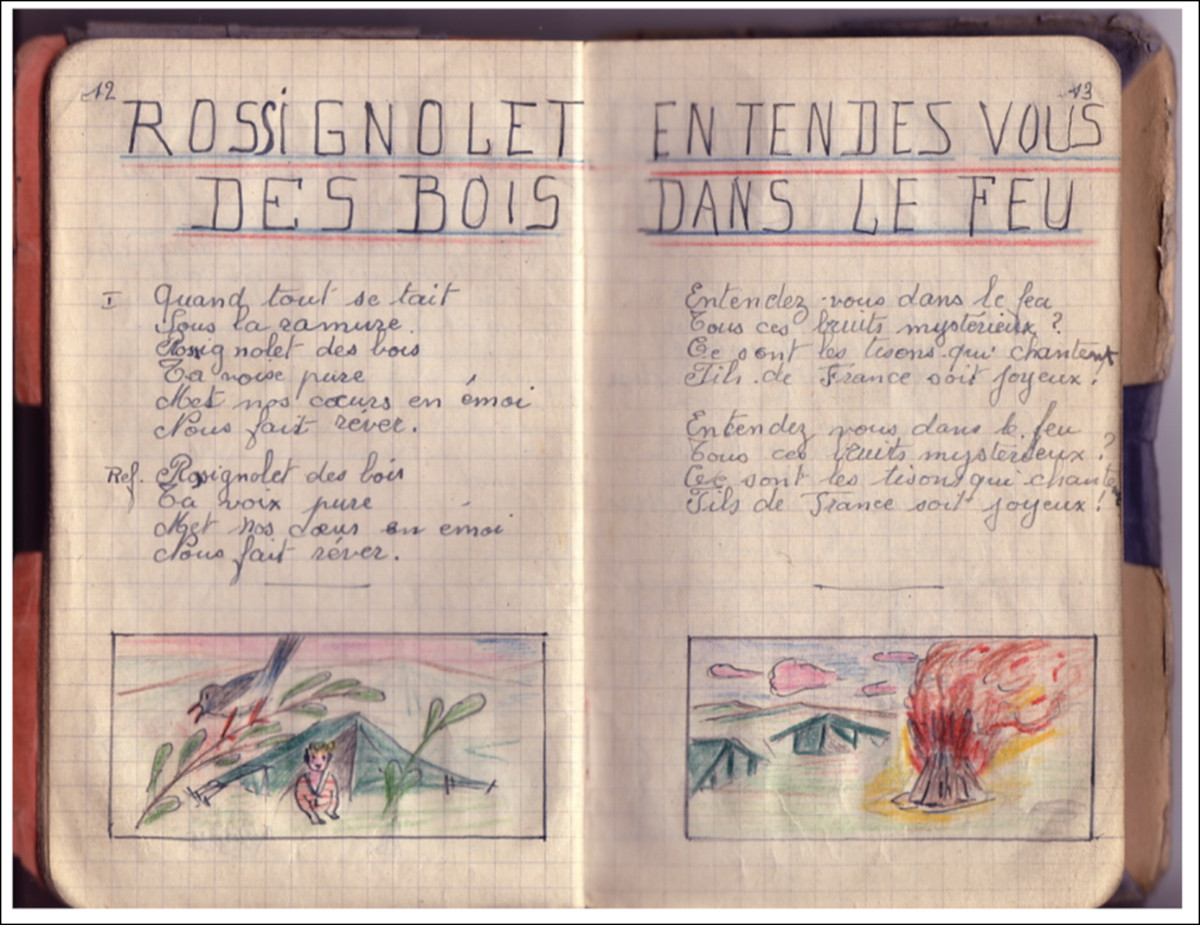 12
ROSSiGNOLET
DES BOIS
I Quand tout se tait
Sous la ramure.
Rossignolet des bois
Ta voise pure
Met nos cœurs en émoi
Nous fait réver.
Ref. Rossignolet des bois
Ta voix pure
Met nos cœur en émoi
Nous fait réver.
13
ENTENDES VOUS
DANS LE FEU
Entendez vous dans le feu
Tous ces bruits mystérieux ?
Ce sont les tisons qui chantent
Fils de France soit joyeux !
Entendez vous dans le feu
Tous ces bruits mystérieux ?
Ce sont les tisons qui chante
Fils de France soit joyeux !